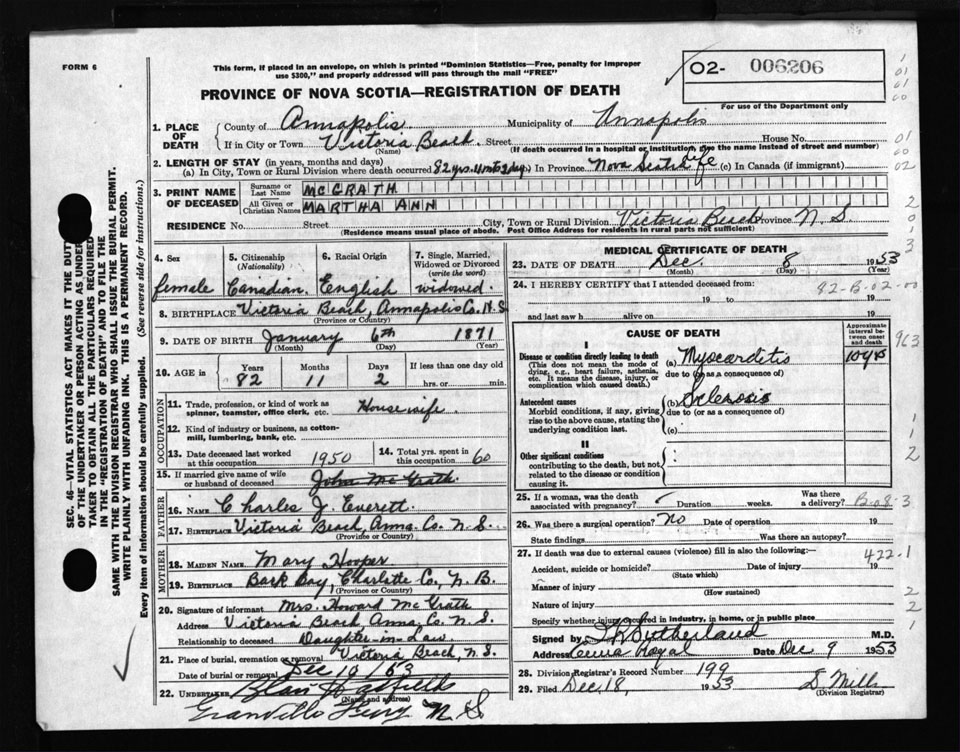 FORM 6
This form, if placed in an envelope, on which is printed "Dominion Statistics—Free, penalty for improper
use $300," and properly addressed will pass through the mail "FREE"
02- 006206
For use of the Department only
PROVINCE OF NOVA SCOTIA—REGISTRATION OF DEATH
1. PLACE OF DEATH
County of Annapolis Municipality of Annapolis
If in City or Town Victoria Beach Street House No.
(Name) (If death occurred in a hospital or institution, give the name instead of street and number)
2. LENGTH OF STAY (in years, months and days)
(a) In City, Town or Rural Division where death occurred 82 yrs. 11 mts 2 dys (b) In Province Nova Scotia life (c) In Canada (if immigrant)
3. PRINT NAME OF DECEASED
Surname or Last Name MCGRATH
All Given or Christian Names MARTHA ANN
RESIDENCE No. Street City, Town or Rural Division Victoria Beach Province N. S.
(Residence means usual place of abode. Post Office Address for residents in rural parts not sufficient)
4. Sex female
5. Citizenship (Nationality) Canadian
6. Racial Origin English
7. Single, Married, Widowed or Divorced (write the word) widowed
8. BIRTHPLACE Victoria Beach, Annapolis Co. N.S
(Province or Country)
9. DATE OF BIRTH January 6th 1871
(Month) (Day) (Year)
10. AGE in Years 82 Months 11 Days 2 If less than one day old hrs. or min.
OCCUPATION
11. Trade, profession, or kind of work as spinner, teamster, office clerk, etc. Housewife
12. Kind of industry or business, as cotton-mill, lumbering, bank, etc.
13. Date deceased last worked at this occupation 1950
14. Total yrs. spent in this occupation 60
15. If married give name of wife or husband of deceased John McGrath
FATHER
16. NAME Charles J. Everett
17. BIRTHPLACE Victoria Beach, Anna. Co. N. S.
(Province or Country)
MOTHER
18. MAIDEN NAME Mary Hooper
19. BIRTHPLACE Back Bay, Charlotte Co., N. B.
(Province or Country)
20. Signature of informant Mrs. Howard McGrath
Address Victoria Beach, Anna. Co. N. S.
Relationship to deceased Daughter-in-Law.
21. Place of burial, cremation or removal Victoria Beach, N. S.
Date of burial or removal Dec 10/53
22. UNDERTAKER
(Name and address)
N S.
MEDICAL CERTIFICATE OF DEATH
23. DATE OF DEATH Dec. 8 1953
(Month) (Day) (Year)
24. I HEREBY CERTIFY that I attended deceased from:
19 to 19
and last saw h alive on 19
82-B-02-00
CAUSE OF DEATH
Approximate interval between onset and death
I
Disease or condition directly leading to death (a) Myocarditis 10 yrs
(This does not mean the mode of dying, e.g., heart failure, asthenia, etc. It means the disease, injury, or complication which caused death.)
due to (or as a consequence of)
Antecedent causes (b) Sclerosis
Morbid conditions, if any, giving rise to the above cause, stating the underlying condition last.
due to (or as a consequence of)
(c)
II
Other significant conditions
contributing to the death, but not related to the disease or condition causing it.
25. If a woman, was the death associated with pregnancy? Duration weeks. Was there a delivery? B-08-3
26. Was there a surgical operation? No Date of operation 19
State findings Was there an autopsy?
27. If death was due to external causes (violence) fill in also the following:
422-1
Accident, suicide or homicide? Date of injury 19
(State which)
Manner of injury
(How sustained)
Nature of injury
Specify whether injury occurred in industry, in home, or in public place
Signed by Sutherland M.D.
Address Royal Date Dec 9 1953
28. Division Registrar's Record Number 199
29. Filed Dec. 18, 1953 S. Mills
(Division Registrar)
SEC. 46—VITAL STATISTICS ACT MAKES IT THE DUTY
OF THE UNDERTAKER OR PERSON ACTING AS UNDERTAKER TO OBTAIN ALL THE PARTICULARS REQUIRED
IN THE "REGISTRATION OF DEATH" AND TO FILE THE
SAME WITH THE DIVISION REGISTRAR WHO SHALL ISSUE THE BURIAL PERMIT.
WRITE PLAINLY WITH UNFADING INK. THIS IS A PERMANENT RECORD.
Every item of information should be carefully supplied. (See reverse side for instructions.)